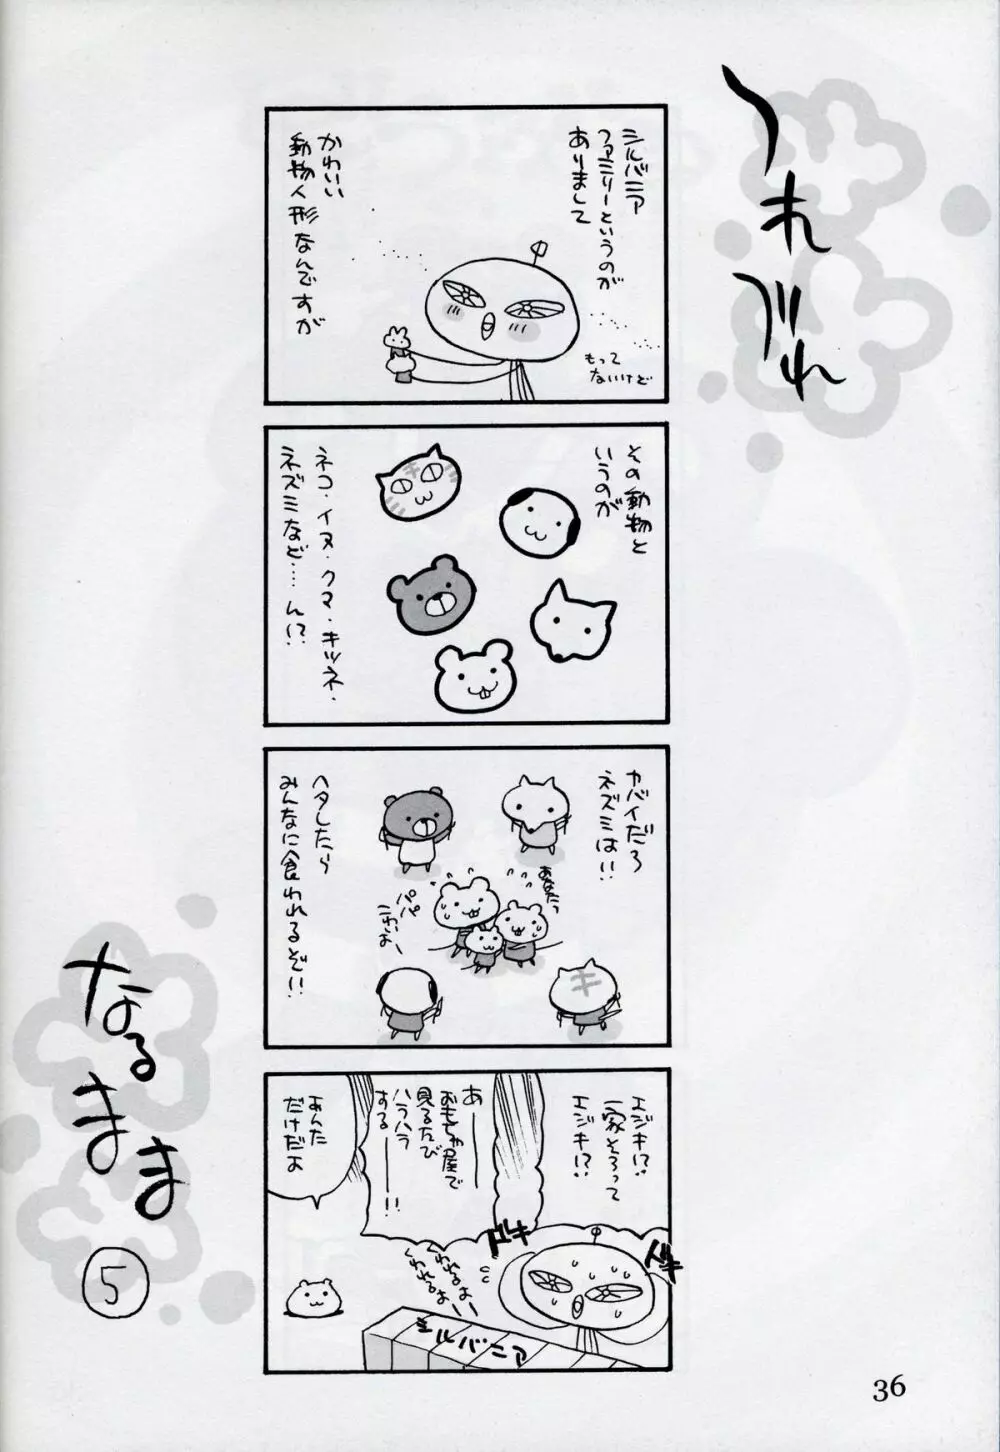 つれづれ
なるまま
5
シルバニア
ファミリーというのが
ありまして
かわいい
動物人形なんですが
もって
ないけど
その動物と
いうのが
ネコ・イヌ・クマ・キツネ・
ネズミなど……ん!?
ヤバイだろ
ネズミは!!
あなたっ
パパ
こわいよー
ヘタしたら
みんなに食われるぞ!!
エジキ!?
一家そろって
エジキ!?
あ――
おもちゃ屋で
見るたび
ハラハラ
する――!!
あんた
だけだよ
ドキ
ドキ
くわれるよー
くわれるよー
シルバニア
36